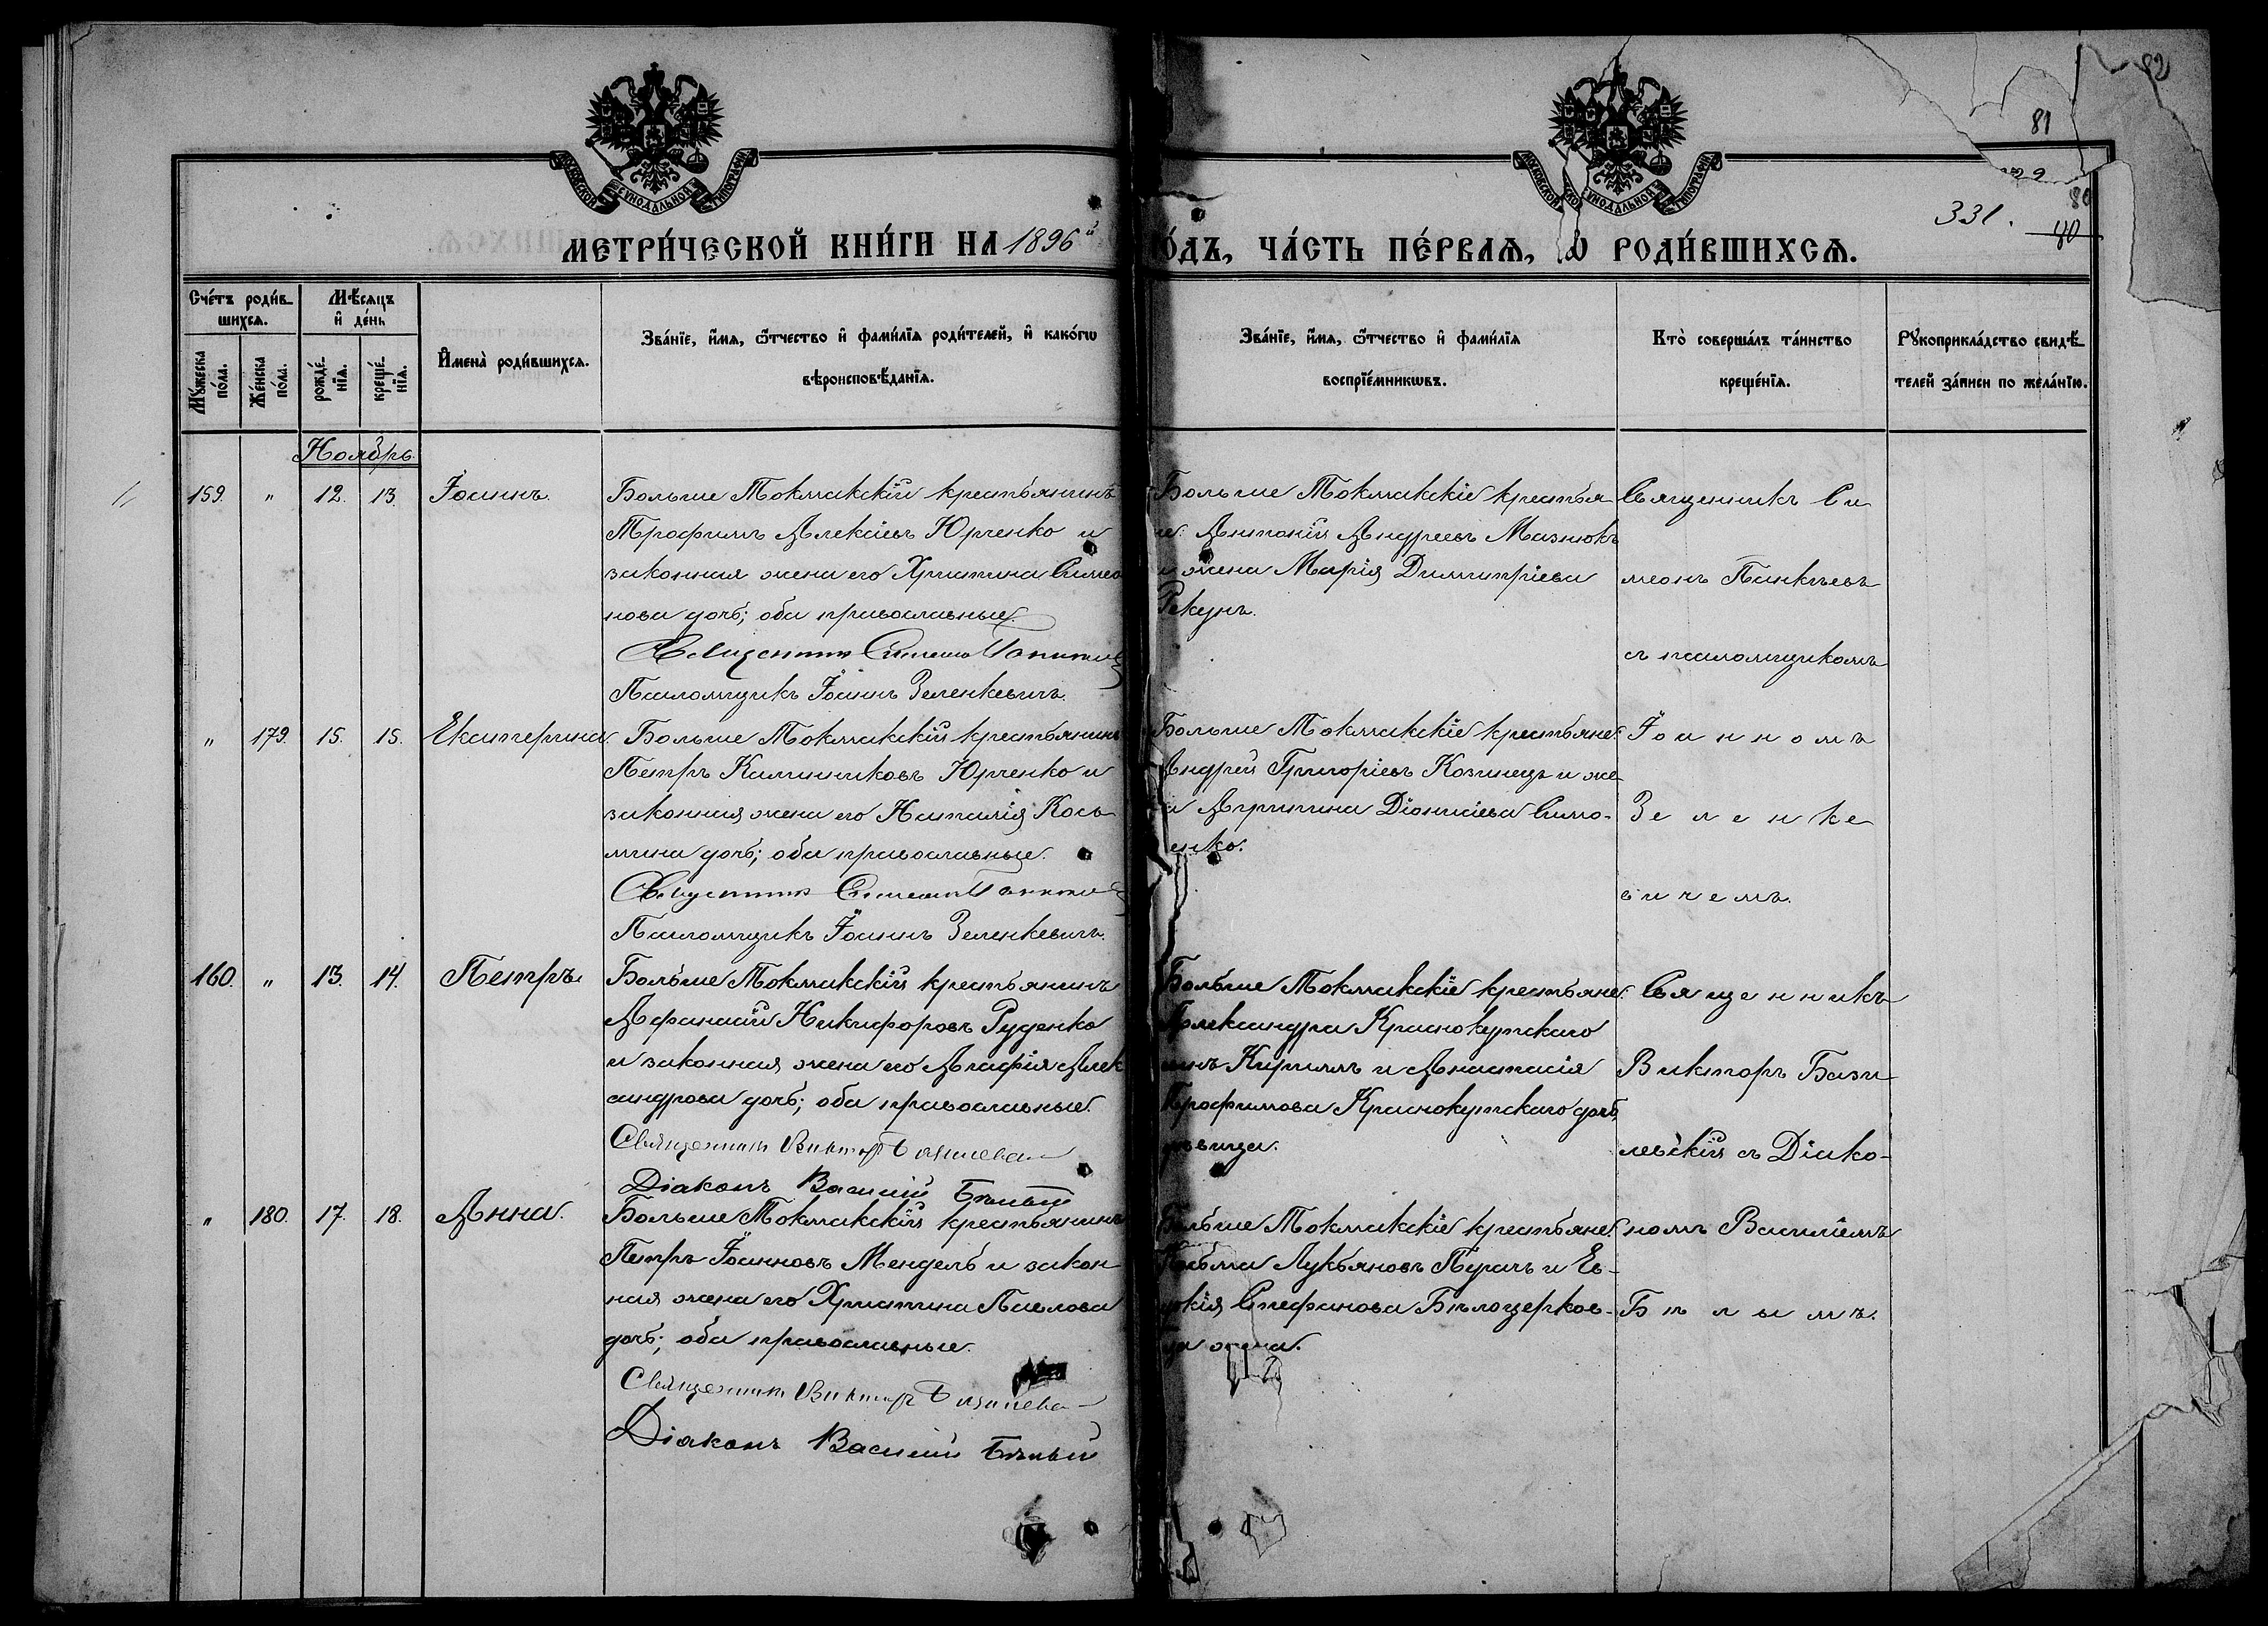 82
81
80
331.
40
МОСКОВСКОЙ СУНОДАЛЬНОЙ ТИПОГРАФІИ
МОСКОВСКОЙ СУНОДАЛЬНОЙ ТИПОГРАФІИ
МЕТРИ́ЧЕСКОЙ КНИ́ГИ НА 1896й
О́ДЪ, ЧА́СТЬ ПЕ́РВАѦ, Ѡ РОДИ́ВШИХСѦ.
Сче́тъ роди́в-
шихсѧ.
Мѣ́сѧцъ
и҆ де́нь
Мꙋ́жеска
по́ла.
Же́нска
по́ла.
рожде́-
нїѧ.
креще́-
нїѧ.
И҆мена̀ роди́вшихсѧ.
Зва́нїе, и҆́мѧ, ѻ҆́тчество и҆ фами́лїѧ роди́телей, и҆ како́гѡ
вѣроисповѣ́данїѧ.
Зва́нїе, и҆́мѧ, ѻ҆́тчество и҆ фами́лїѧ
воспрїе́мникѡвъ.
Кто̀ соверша́лъ та́инство
креще́нїѧ.
Рꙋкоприкла́дство свидѣ́-
телей за́писи по жела́нїю.
Ноябрь.
159. " 12. 13. Іоаннъ.
Больше Токмакскій крестьянинъ
Трофимъ Алексіевъ Юрченко и
законная жена его Христина Симео
нова дочь; оба православные.
Священникъ Симеонъ Панктьевъ
Псаломщикъ Іоаннъ Зеленкевичъ.
Больше Токмакскіе крестья
не: Антоній Андреевъ Мазнюкъ
и жена Марія Димитріева
Рекунъ.
Священникъ Си
меонъ Панктьевъ
съ псаломщикомъ
" 179. 15. 15. Екатерина.
Больше Токмакскій крестьянинъ
Петръ Калинниковъ Юрченко и
законная жена его Наталія Кось
мина дочь; оба православные.
Священникъ Симеонъ Панктьевъ
Псаломщикъ Іоаннъ Зеленкевичъ.
Больше Токмакскіе крестьяне:
Андрей Григоріевъ Козинецъ и же
а Агрипина Діонисіева Симо-
енко.
Іоанномъ
Зеленке
вичемъ.
160. " 13. 14. Петръ
Больше Токмакскій крестьянинъ
Афанасій Никифоровъ Руденко
и законная жена его Агафія Алек
сандрова дочь; оба православные.
Священникъ Викторъ Базилевск
Діаконъ Василій Бѣлый
Больше Токмакскіе крестьяне:
Александра Краснокутскаго
сынъ Кириллъ и Анастасія
Трофимова Краснокутскаго дочь
дѣвица.
Священникъ
Викторъ Бази-
левскій съ Діако-
" 180. 17. 18. Анна.
Больше Токмакскій крестьянинъ
Петръ Іоанновъ Мендель и закон
ная жена его Христина Павлова
дочь; оба православные.
Священникъ Викторъ Базилевск
Діаконъ Василій Бѣлый
Больше Токмакскіе крестьяне:
Косьма Лукьяновъ Пугачъ и Ев-
докія Стефанова Бѣлоцерков-
ца жена.
номъ Василіемъ
Бѣлымъ.